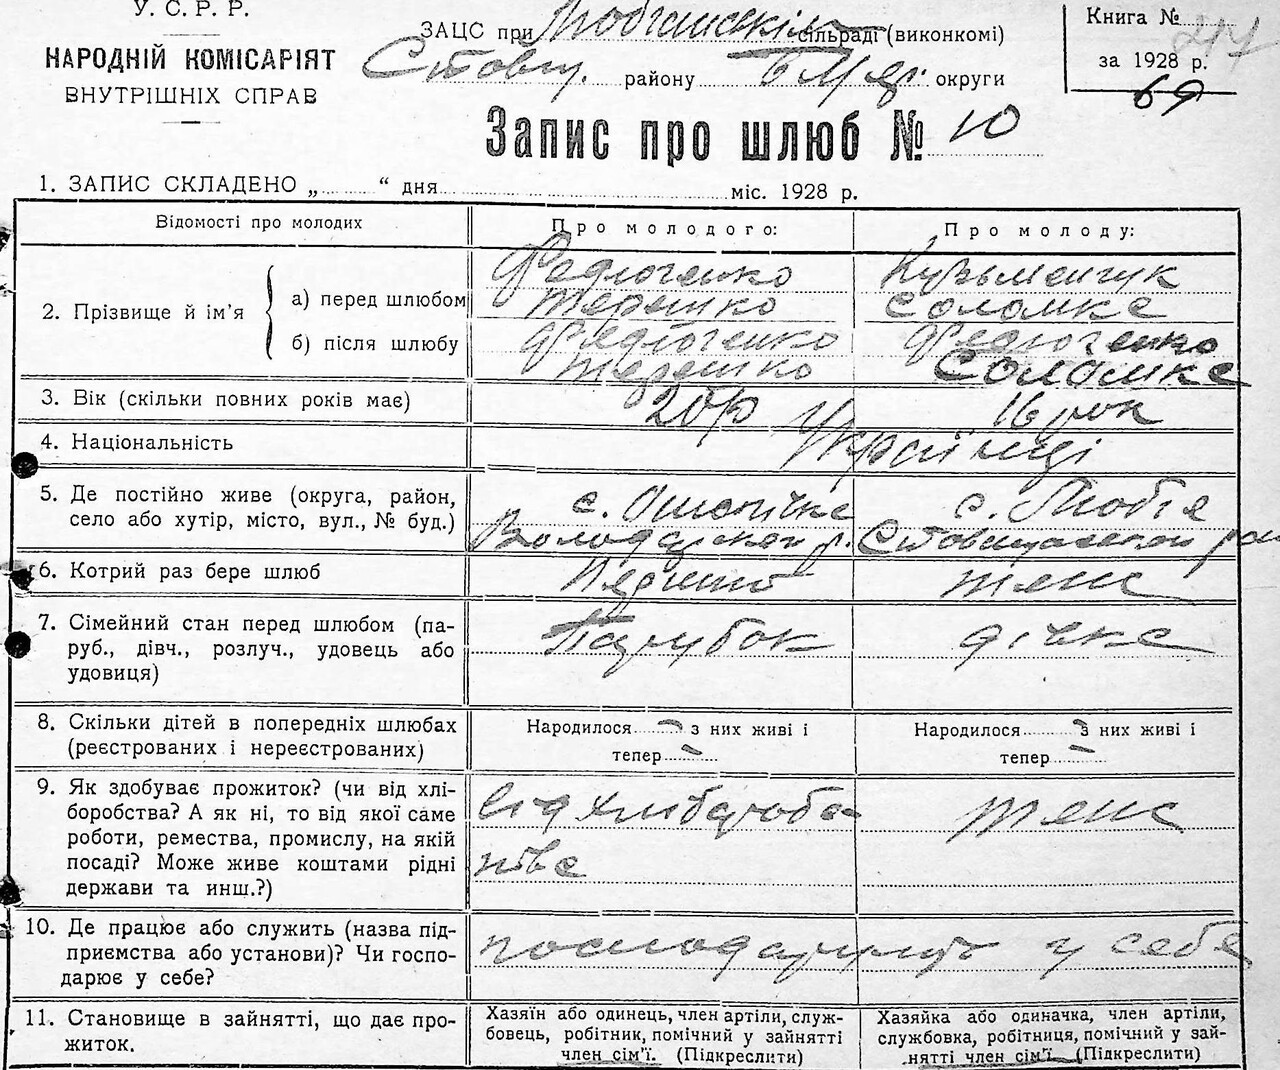 У. С. Р. Р.
НАРОДНІЙ КОМІСАРІЯТ
ВНУТРІШНІХ СПРАВ
ЗАЦС при сільраді (виконкомі)
району округи
Книга №
за 1928 р.
69
Запис про шлюб № 10
1. ЗАПИС СКЛАДЕНО „ “ дня міс. 1928 р.
Відомості про молодих
Про молодого:
Про молоду:
2. Прізвище й ім'я
а) перед шлюбом
Терешко
Кузьменчук
Соломка
б) після шлюбу
Терешко
Соломка
3. Вік (скільки повних років має)
20 р
16 рок
4. Національність
Українці
5. Де постійно живе (округа, район,
село або хутір, місто, вул., № буд.)
с.
Володарськ р.
с.
6. Котрий раз бере шлюб
теж
7. Сімейний стан перед шлюбом (па-
руб., дівч., розлуч., удовець або
удовиця)
Парубок
дівка
8. Скільки дітей в попередніх шлюбах
(реєстрованих і нереєстрованих)
Народилося з них живі і
тепер
Народилося з них живі і
тепер
9. Як здобуває прожиток? (чи від хлі-
боробства? А як ні, то від якої саме
роботи, ремества, промислу, на якій
посаді? Може живе коштами рідні
держави та инш.?)
від хлібороб
ства
теж
10. Де працює або служить (назва під-
приємства або установи)? Чи госпо-
дарює у себе?
господарують у себе
11. Становище в зайнятті, що дає про-
житок.
Хазяїн або одинець, член артілі, служ-
бовець, робітник, помічний у зайнятті
член сім'ї. (Підкреслити)
Хазяйка або одиначка, член артілі,
службовка, робітниця, помічний у зай-
нятті член сім'ї. (Підкреслити)